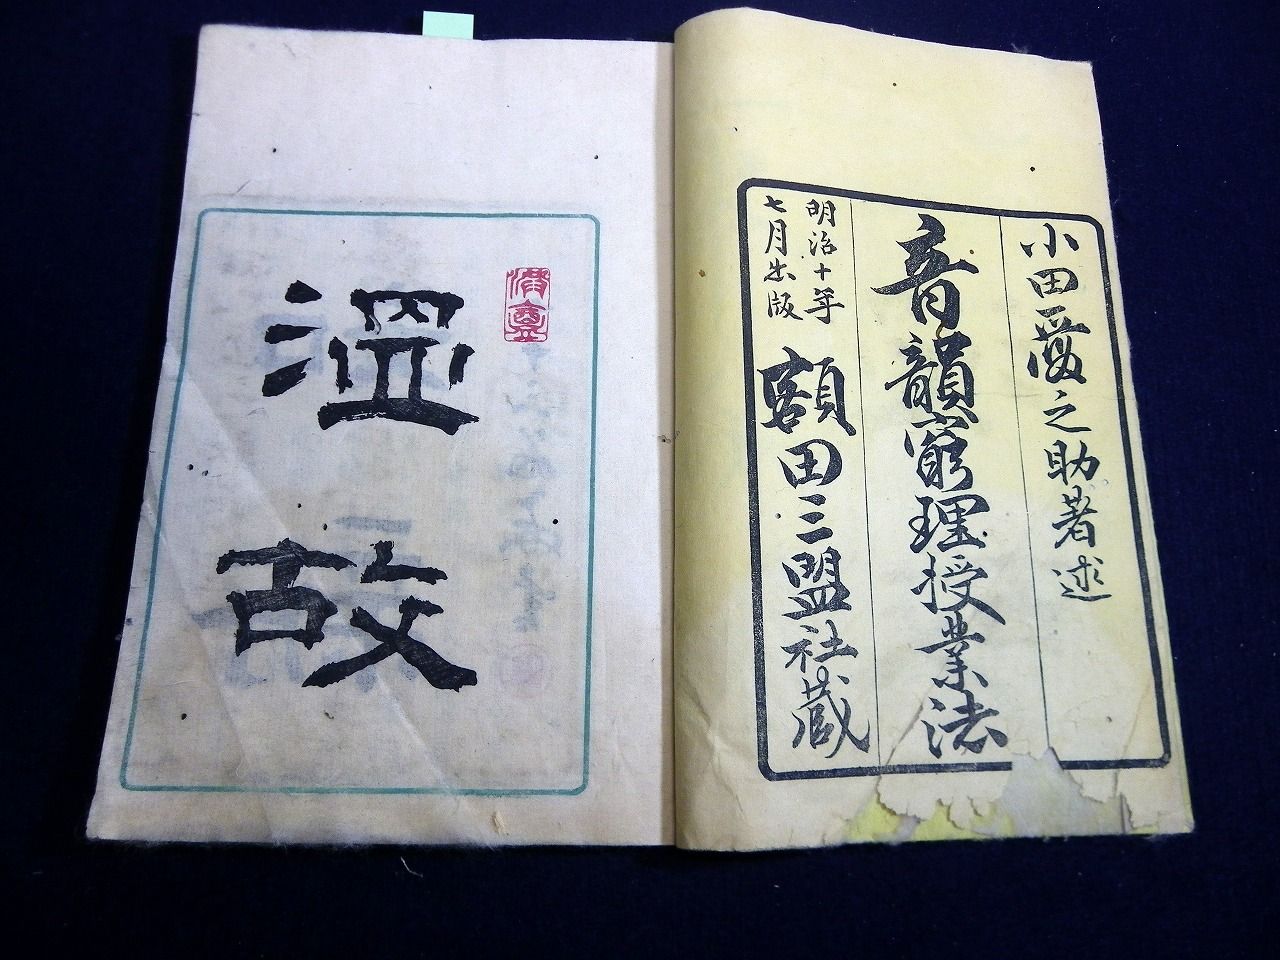 小田愛之助著述
音韻窮理授業法
明治十年
七月出版
額田三盟社蔵
温
故